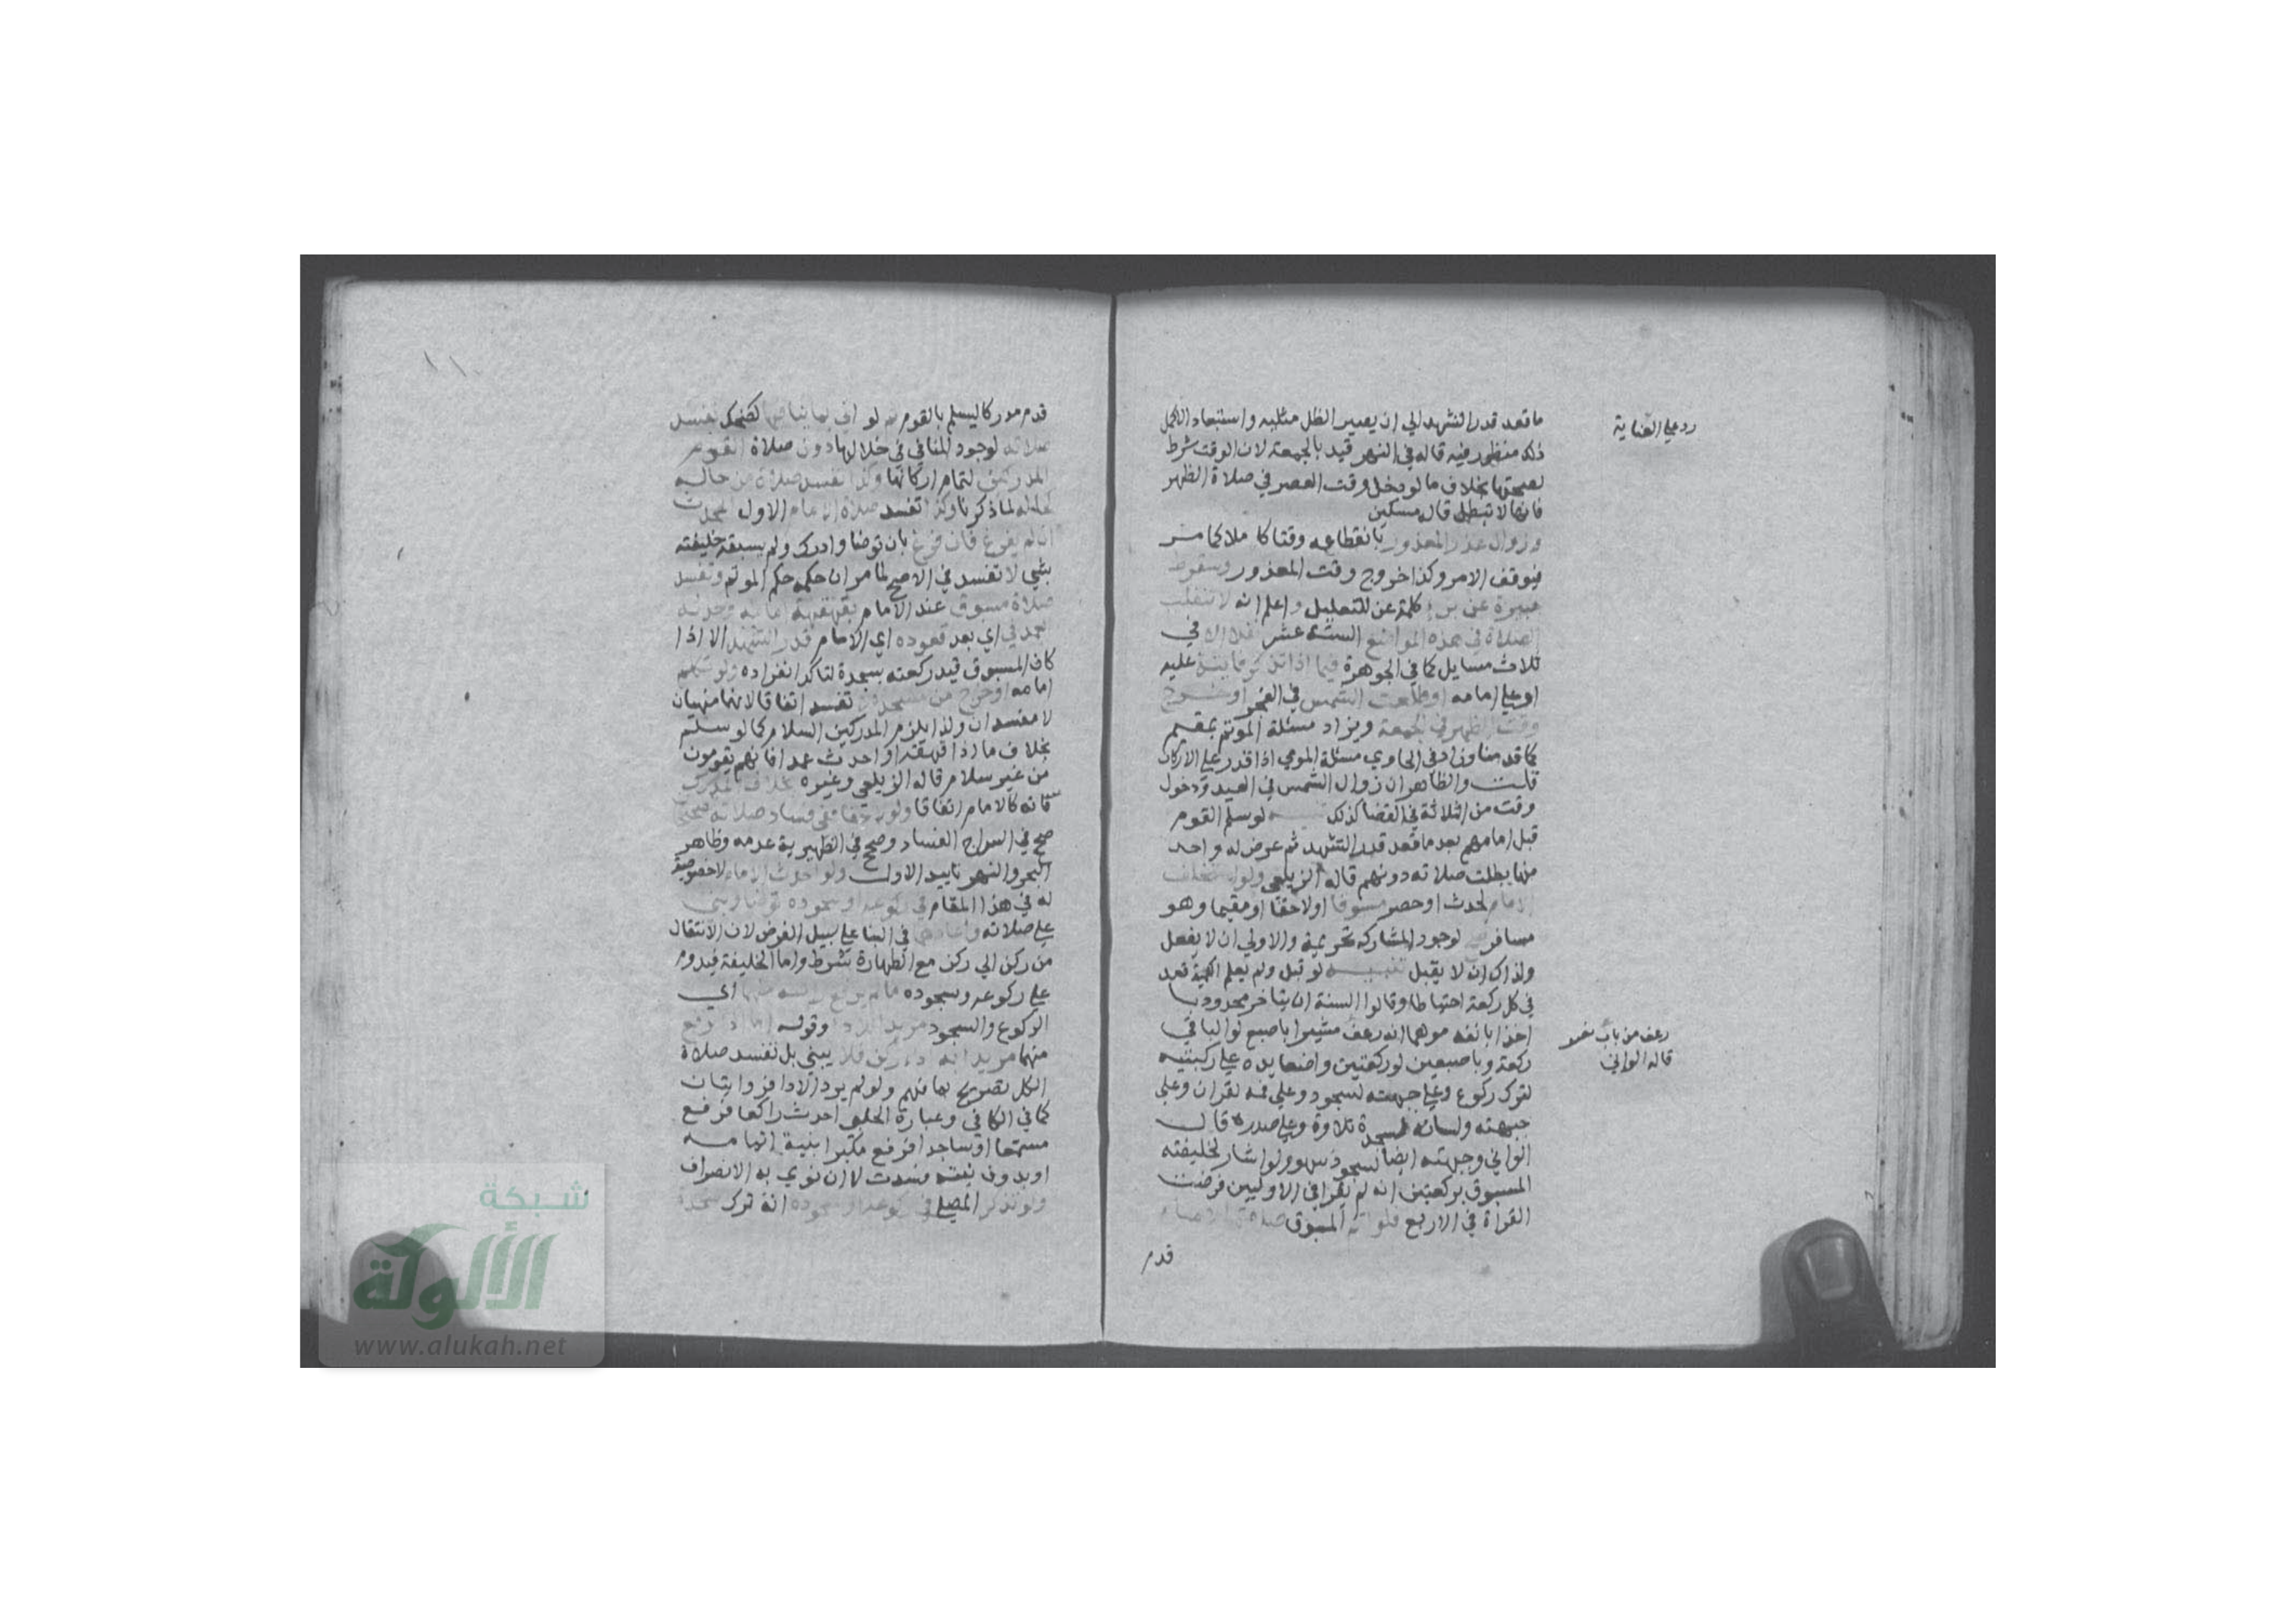 ما قعد قدر التشهد الي ان يصير الظل مثليه واستبعاد الاكمل
رد علي العناية
ذلك منظور فيه قاله في النهر قيد بالجمعة لان الوقت شرط
لصحتها بخلاف ما لو دخل وقت العصر في صلاة الظهر
فانها لا تبطل قاله مسكين
وزوال عذر المعذور بانقطاعه وقتا كاملا كما مر
فيوقف الامر وكذا خروج وقت المعذور وسقوط
جبيرة عن برء كلمة عن للتعليل واعلم انه لا تنقلب
الصلاة في هذه المواضع الستة عشر نفلا الا في
ثلاث مسايل كما في الجوهرة فيما اذا تذكر فايتة عليه
او علي امامه او طلعت الشمس في الفجر او خرج
وقت الظهر في الجمعة ويزاد مسئلة الموتم بمقيم
كما قدمنا وزاد في الحاوي مسئلة المومي اذا قدر علي الاركان
قلت والظاهر ان زوال الشمس في العيد ودخول
وقت من الثلاثة في القضا كذلك تنبيه لو سلم القوم
قبل امامهم بعد ما قعد قدر التشهد ثم عرض له واحد
منها بطلت صلاته دونهم قاله الزيلعي ولو استخلف
الامام لحدث او حصر مسبوقا او لاحقا او مقيما وهو
مسافر صح لوجود المشاركة تحريمة والاولي ان لا يفعل
ولذاك ان لا يقبل تنبيه لو قبل ولم يعلم الكمية قعد
في كل ركعة احتياطا وقالوا السنة ان يتاخر محدودبا
اخذا بانفه موهما انه رعف مشيرا باصبع لو الباقي
رعف من باب نصر
قاله الواني
ركعة وباصبعين لو ركعتين واضعا يده علي ركبتيه
لترك ركوع وعلي جبهته لسجود وعلي فمه لقران وعلي
جبهته ولسانه لسجدة تلاوة وعلي صدره قال
الواني وجبهته ايضا لسجود سهو ولو اشار لخليفته
المسبوق بركعتين انه لم يقرا في الاوليين فرضت
القراة في الاربع فلو اتم المسبوق صلاة الامام
قدم
١١
قدم مدركا ليسلم بالقوم ثم لو اتي بما ينافيها كضحك تفسد
صلاته لوجود المنافي في خلالها دون صلاة القوم
المدركين لتمام اركانها وكذا تفسد صلاة من حاله
كحاله لما ذكرنا وكذا تفسد صلاة الامام الاول المحدث
ان لم يفرغ فان فرغ بان توضا وادرك ولم يسبقه خليفته
بشي لا تفسد في الاصح لما مر ان حكمه حكم الموتم وتفسد
صلاة مسبوق عند الامام بقهقهة امامه وحدثه
العمد في اي بعد قعوده اي الامام قدر التشهد الا اذا
كان المسبوق قيد ركعته بسجدة لتاكد انفراده ولو تكلم
امامه او خرج من مسجده لا تفسد اتفاقا لانهما منهيان
لا مفسدان ولذا يلزم المدركين السلام كما لو سلم
بخلاف ما اذا قهقه او احدث عمدا فانهم يقومون
من غير سلام قاله الزيلعي وغيره بخلاف المدرك
فانه كالامام اتفاقا ولو لاحقا ففي فساد صلاته تصحيحان
صحح في السراج الفساد وصحح في الظهيرية عدمه وظاهر
البحر والنهر تاييد الاول ولو احدث الامام لا خصوصية
له في هذا المقام في ركوعه او سجوده توضا وبني
علي صلاته واعادهما في البنا علي سبيل الفرض لان الانتقال
من ركن الي ركن مع الطهارة شرط واما الخليفة فيدوم
علي ركوعه وسجوده ما لم يرفع راسه منهما اي
الركوع والسجود مريدا للاداء وقوله اما اذا رفع
منهما مريدا به اداء ركن فلا يبني بل تفسد صلاة
الكل لتصريح بمانهم ولو لم يرد الادا فروايتان
كما في الكافي وعبارة الحلبي احدث راكعا فرفع
مستمعا او ساجدا فرفع مكبرا بنية اتمامه
او بدون نيته فسدت لا ان نوي به الانصراف
ولو تذكر المصلي في ركوعه او سجوده انه ترك سجدة
شبكة
الألوكة
www.alukah.net